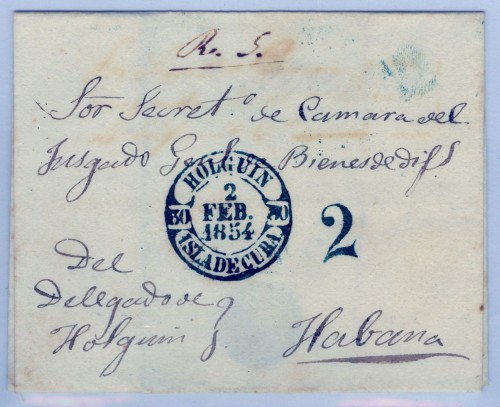 R. S.
Sor Secret.o de Camara del
Jusgado Gral de Bienes de dif.s
HOLGUIN
2
FEB.
1854
30 30
ISLA DE CUBA
2
Del
Delegado de
Holguin
Habana